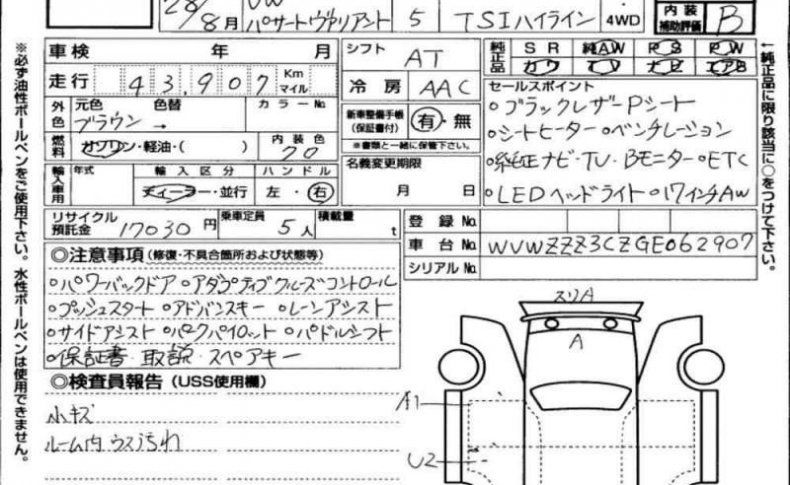 28/8月 VW パサートヴァリアント 5 TSIハイライン 4WD 内装補助評価 B
車検 年 月 シフト AT 純正品 SR 純AW PS PW
走行 43,907 Km マイル 冷房 AAC カワ TV ナビ エアB
外色 元色 ブラウン 色替 → カラーNo.
新車整備手帳(保証書付) 有・無
※書類と一緒に保管下さい。
燃料 ガソリン・軽油・( ) 内装色 20
名義変更期限 月 日
輸入車用 年式 輸入区分 ディーラー・並行 ハンドル 左・右
セールスポイント
○ブラックレザーPシート
○シートヒーター○ベンチレーション
○純正ナビ・TV・Bモニター○ETC
○LEDヘッドライト○17インチAW
リサイクル預託金 17030円 乗車定員 5人 積載量 t
登録No.
車台No. WVWZZZ3CZGE062907
シリアルNo.
◎注意事項(修復・不具合箇所および状態等)
○パワーバックドア○アダプティブクルーズコントロール
○プッシュスタート○アドバンスキー○レーンアシスト
○サイドアシスト○パークパイロット○パドルシフト
○保証書・取説・スペアキー
◎検査員報告(USS使用欄)
小キズ
ルーム内ウスよごれ
スリA
A
A1
U2
※必ず油性ボールペンをご使用下さい。水性ボールペンは使用できません。
←純正品に限り該当に○をつけて下さい。